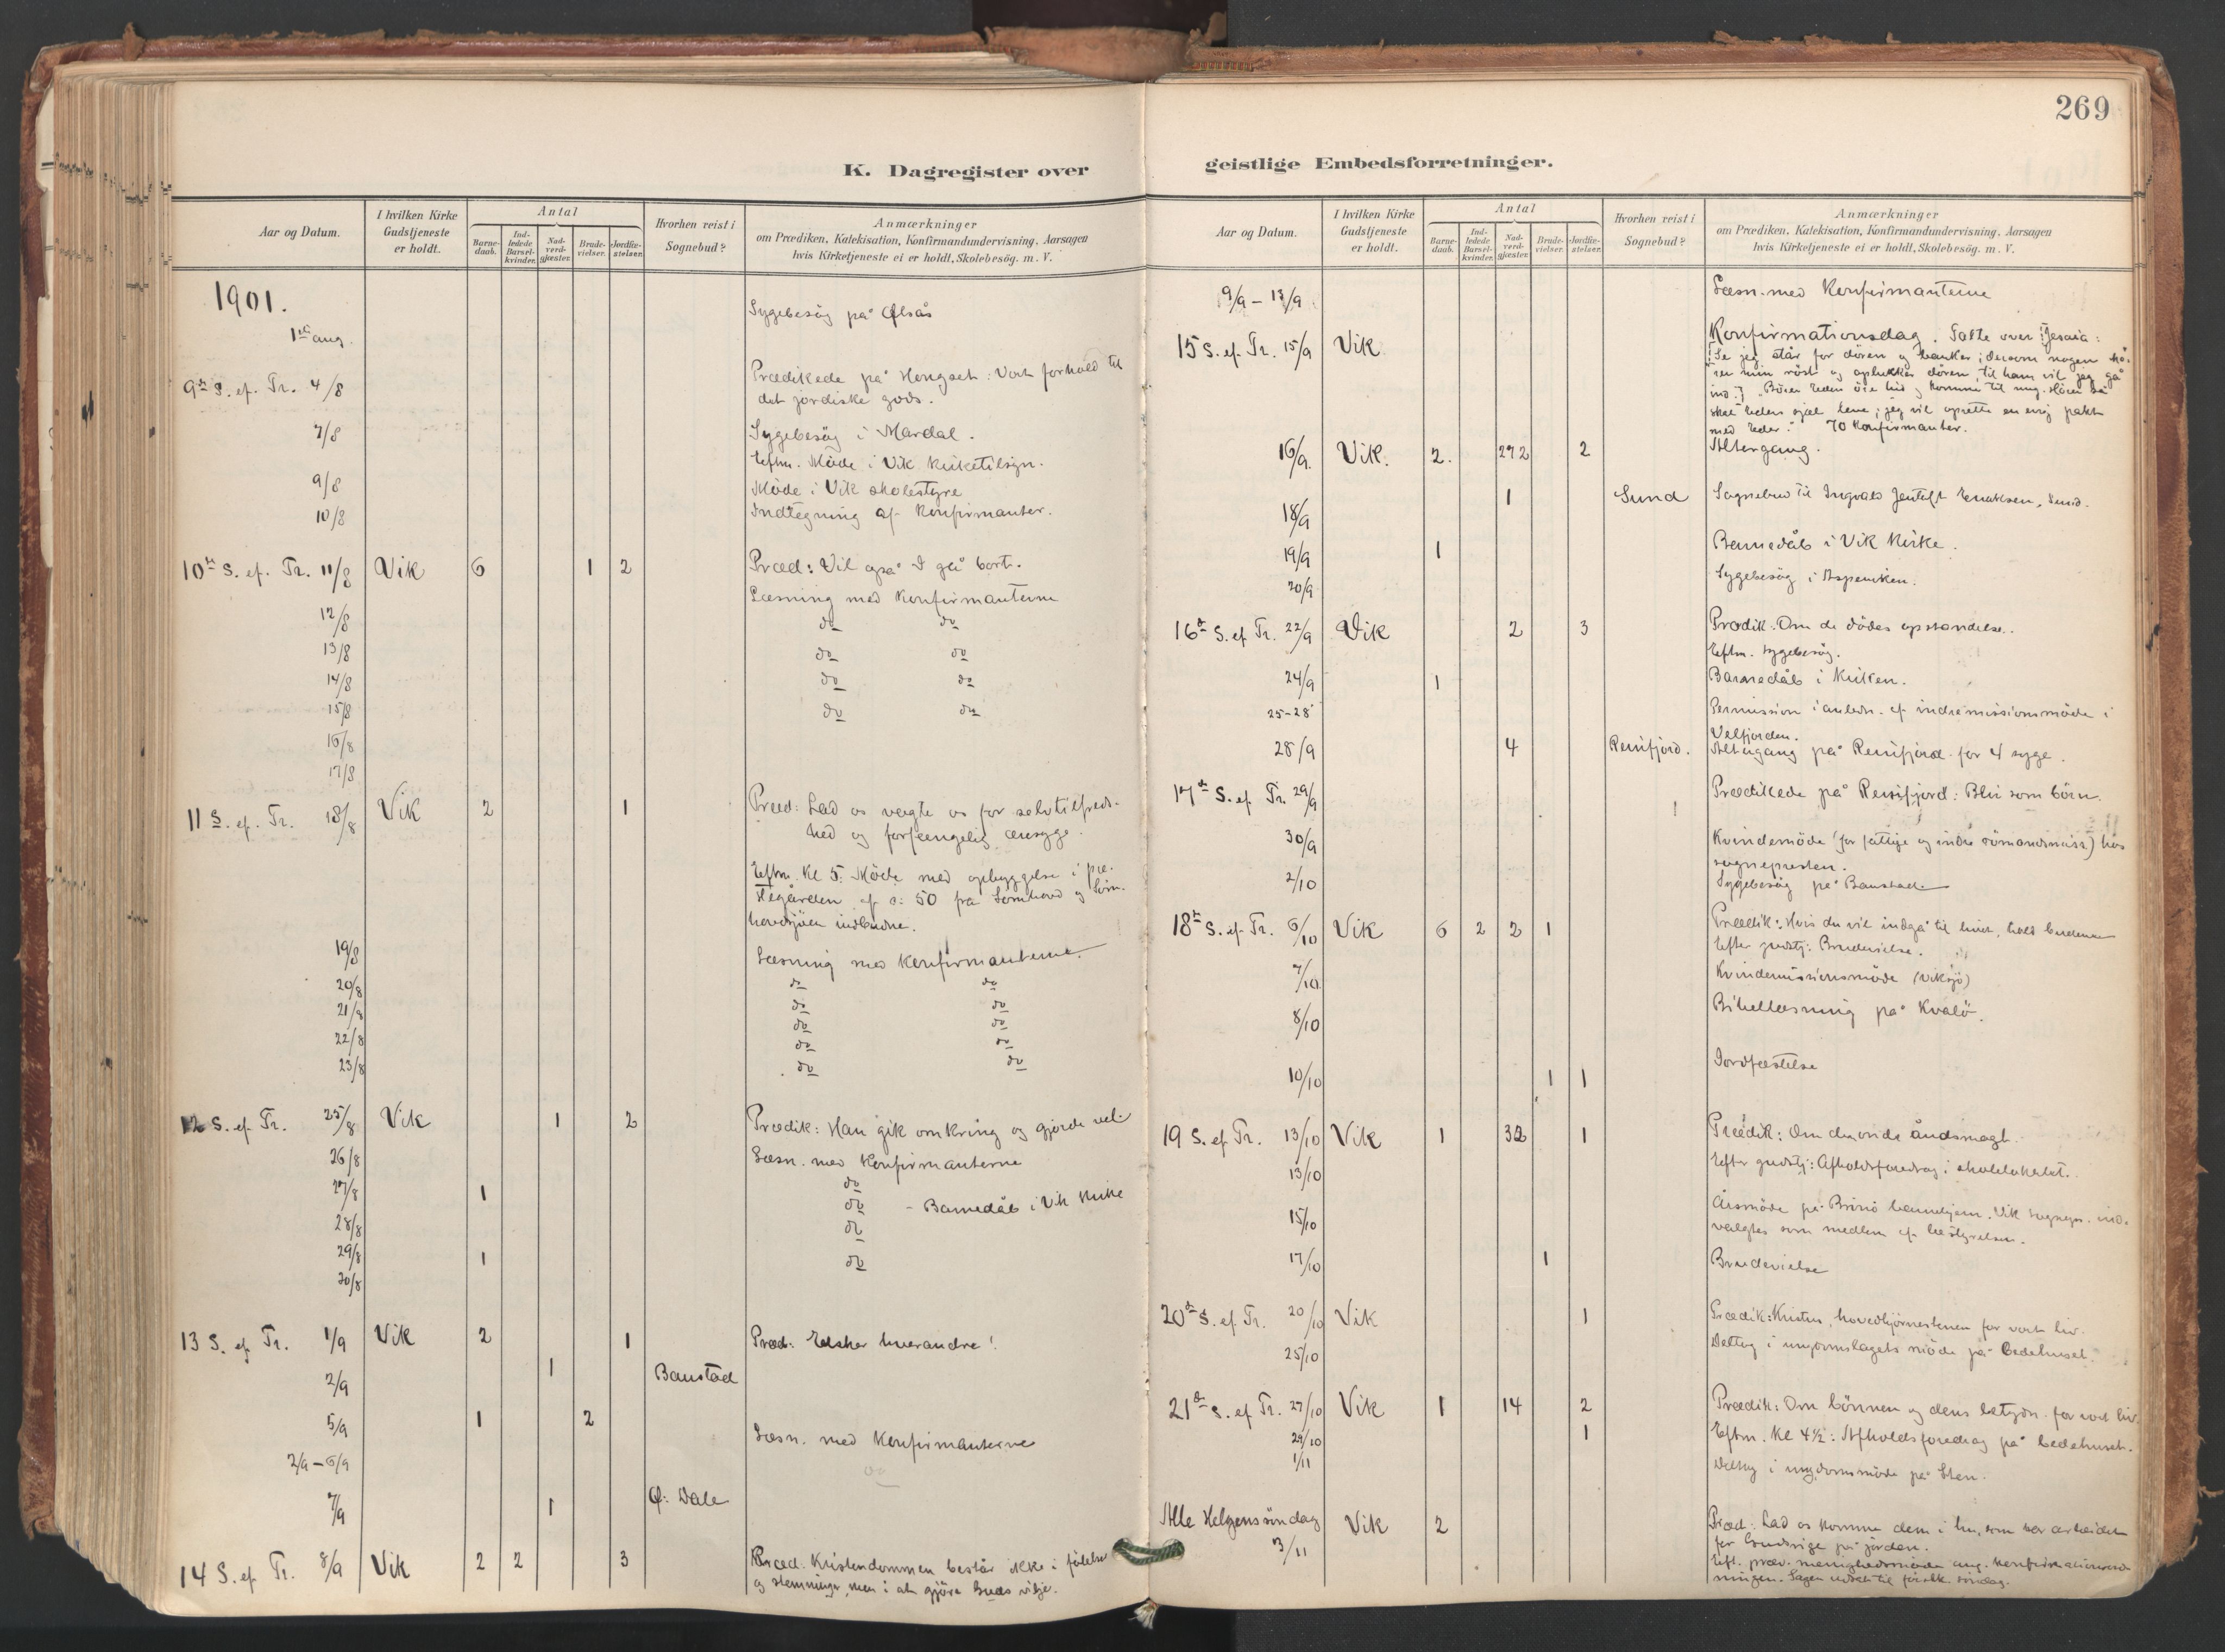 269
K. Dagregister over geistlige Embedsforretninger.
Aar og Datum.
I hvilken Kirke Gudstjeneste er holdt.
Antal
Barne-daab.
Ind-ledede Barsel-kvinder.
Nad-verd-gjæster.
Brude-vielser.
Jordfæ-stelser.
Hvorhen reist i Sognebud?
Anmærkninger
om Prædiken, Katekisation, Konfirmandundervisning, Aarsagen
hvis Kirketjeneste ei er holdt, Skolebesög. m. V.
1901.
1ste aug. Sygebesög på Ølsås
9de S. ef. Tr. 4/8 Prædikede på Hongset: Vort forhold til
det jordiske gods.
7/8 Sygebesög i Mardal.
Eftm. Møde i Vik kirketilsyn.
9/8 Møde i Vik skolestyre
10/8 Indtegning af konfirmanter.
10de S. ef. Tr. 11/8 Vik 6 1 2 Præd: Vil også I gå bort.
Læsning med konfirmanterne
12/8 do do
13/8 do do
14/8 do do
15/8 do do
16/8
17/8
11 S. ef. Tr. 18/8 Vik 2 1 Præd: Lad os vogte os for selvtilfreds-
hed og forfængelig ærsyge.
Eftm. kl 5. Møde med opbyggelse i præ-
stegården af c: 50 fra Sømhoved og Söm-
hovedsjöen indbudne.
19/8 Læsning med konfirmanterne.
20/8 do do
21/8 do do
22/8 do do
23/8 do do
do do
12 S. ef. Tr. 25/8 Vik 1 2 Prædik: Han gik omkring og gjorde vel.
26/8 Læsn. med konfirmanterne
27/8 1 do
28/8 do - Barnedåb i Vik kirke
29/8 1 do
30/8 do
13 S. ef Tr. 1/9 Vik 2 1 Præd: Elsker hverandre!
2/9 1 Baustad
5/9 1 2
2/9 – 6/9 Læsn. med konfirmanterne
7/9 1 Ø: Dale
14 S. ef Tr. 8/9 Vik 2 2 3 Præd. Kristendommen består ikke i følelser
og stemninger, men i at gjöre Guds vilje.
Aar og Datum.
I hvilken Kirke Gudstjeneste er holdt.
Antal
Barne-daab.
Ind-ledede Barsel-kvinder.
Nad-verd-gjæster.
Brude-vielser.
Jordfæ-stelser.
Hvorhen reist i Sognebud?
Anmærkninger
om Prædiken, Katekisation, Konfirmandundervisning, Aarsagen
hvis Kirketjeneste ei er holdt, Skolebesög. m. V.
9/9 – 13/9 Læsn. med konfirmanterne
15 S. ef. Tr. 15/9 Vik Konfirmationsdag. Talte over Jesaia:
[Se jeg står for døren og banker; dersom nogen hö-
rer min röst og oplukker dören, til ham vil jeg gå
ind.] "Böier eders öre hid og kommer til mig. Hörer så
skal eders sjæl leve; jeg vil oprette en evig pakt
med eder." 70 konfirmanter.
16/9. Vik. 2. 272 2 Altergang.
18/9 1 Sund Sognebud til Ingvald Jentoft Enoksen, Sund.
19/9 1 Barnedåb i Vik kirke.
20/9 Sygebesög i Aspeviken.
16de S. ef Tr. 22/9 Vik 2 3 Prædik: Om de dödes opstandelse.
Eftm. sygebesög.
24/9 1 Barnedåb i kirken.
25-28 Permission i anledn. af indremissionsmöde i
Velfjorden.
28/9 4 Reinfjord. Altergang på Reinfjord for 4 syge.
17de S. ef Tr. 29/9 Prædikede på Reinfjord: Bliv som börn.
30/9 Kvindemöde (for fattige og indre sömandsmiss.) hos
sognepresten.
2/10 Sygebesög på Baustad.
18de S. ef Tr. 6/10 Vik 6 2 2 1 Prædik: Hvis du vil indgå til livet, hold budene
Efter gudstj: Brudevielse.
7/10 Kvindemissionsmöde (Viksjö)
8/10 Bibellæsning på Kvalö.
10/10 1 1 Jordfæstelse
19 S. ef Tr. 13/10 Vik 1 32 1 Prædik: Om den onde åndsmagt.
13/10 Efter gudstj: Afholdsforedrag i skolelokalet.
15/10 Årsmöde på Brönö barnehjem. Vik sognepr. ind-
valgtes som medlem af bestyrelsen.
17/10 1 Brudevielse
20de S. ef. Tr. 20/10 Vik 1 Prædik: Kristus, hovedhjörnestenen for vort liv.
25/10 Deltog i ungdomslagets möde på bedehuset.
21de S. ef Tr. 27/10 Vik 1 14 2 Prædik: Om bönnen og dens betydn. for vort liv.
29/10 1 Eftm. kl 4½: Afholdsforedrag på bedehuset.
1/11 Deltog i ungdomsmöde på Sten.
Alle Helgens söndag 3/11 Vik 2 Præd: Lad os komme dem i hu, som har arbeidet
for Guds rige på jorden.
Eft. præd. menighedsmöde ang. konfirmationsord-
ningen. Sagen udsat til förstk. söndag.